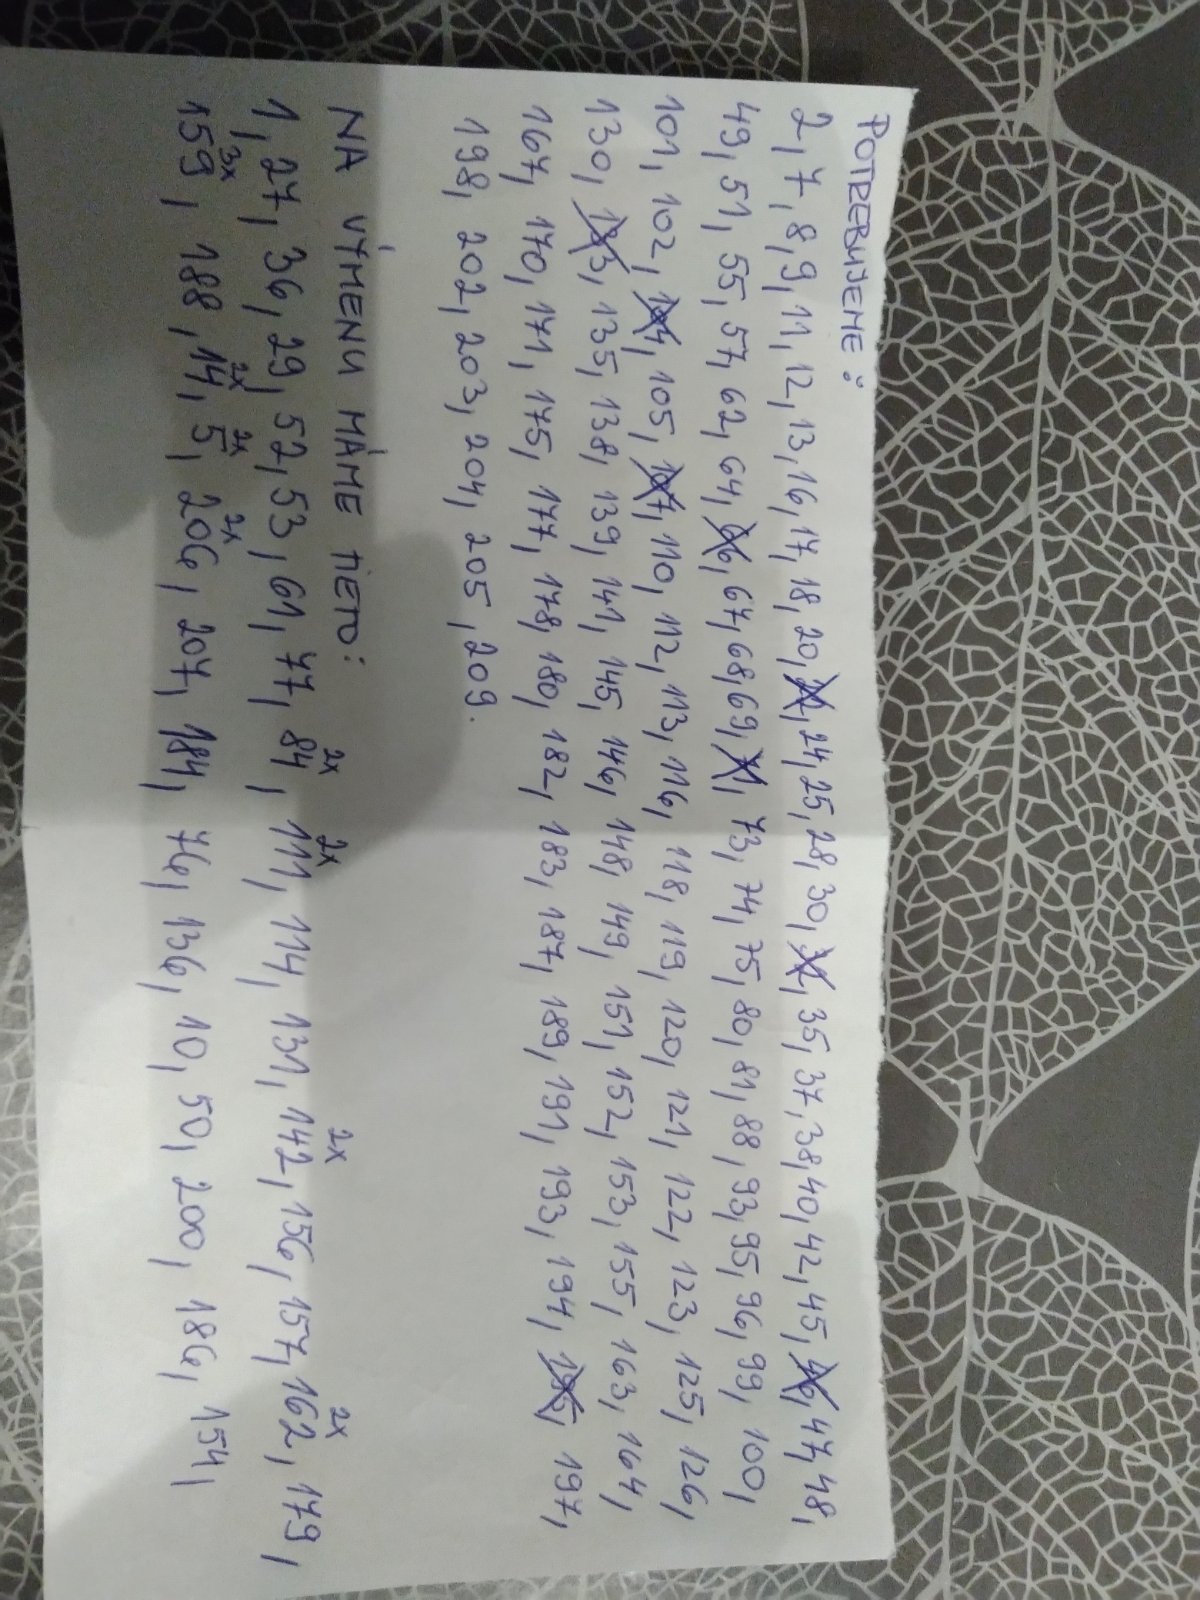 POTREBUJEME:
2, 7, 8, 9, 11, 12, 13, 16, 17, 18, 20, 24, 25, 28, 30, 35, 37, 38, 40, 42, 45, 46, 47, 48,
49, 51, 55, 57, 62, 64, 66, 67, 68, 69, 71, 73, 74, 75, 80, 81, 88, 93, 95, 96, 99, 100,
101, 102, 104, 105, 107, 110, 112, 113, 116, 118, 119, 120, 121, 122, 123, 125, 126,
130, 133, 135, 138, 139, 141, 145, 146, 148, 149, 151, 152, 153, 155, 163, 164,
167, 170, 171, 175, 177, 178, 180, 182, 183, 187, 189, 191, 193, 194, 195, 197,
198, 202, 203, 204, 205, 209.
NA VÝMENU MÁME TIETO:
1, 27, 36, 29, 52, 53, 61, 77, 84 2x, 111 2x, 114, 131, 142 2x, 156, 157, 162 2x, 179,
159 3x, 188, 14 2x, 5 2x, 206 2x, 207, 184, 76, 136, 10, 50, 200, 186, 154,